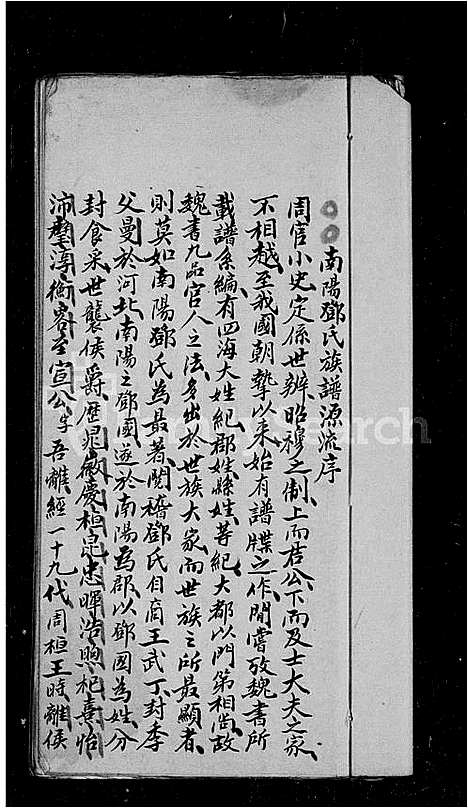 南陽鄧氏族譜源流序
周官小史定係世辨昭穆之制上而君公下而及士大夫之家
不相越至我國朝摯以来始有譜牒之作間嘗攷魏書所
載譜系編有四海大姓紀郡姓縣姓等紀大都以門第相尚故
魏書九品官人之法多出於世族大家而世族之所最顯者
則莫如南陽鄧氏為最著閱稽鄧氏自商王武丁封季
父曼於河北南陽之鄧國遂於南陽為郡以鄧國為姓分
封食采世襲侯爵歷晁徽慶桓昆忠暉浩煦杞熹怡
沛璧淳衡客至宣公字吾離經一十九代周桓王時離侯